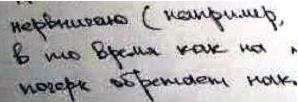 нервничаю (например,
в то время как на
почерк обретает нак